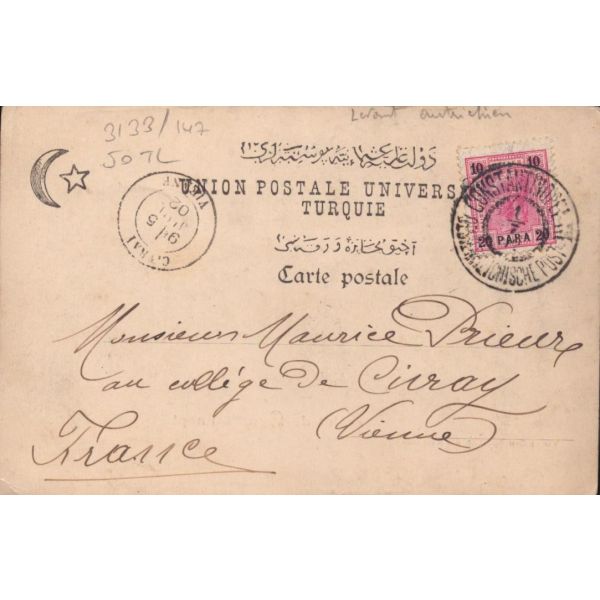 3133/147
50 TL
Levant autrichien
دولت عليه عثمانيه پوسته لری
UNION POSTALE UNIVERSELLE
TURQUIE
Carte postale
10 10
20 PARA 20
CONSTANTINOPEL
OESTERREICHISCHE POST
CIVRAY
5
02
VIENNE
Monsieur Maurice Prieur
au collège de Civray
Vienne
France